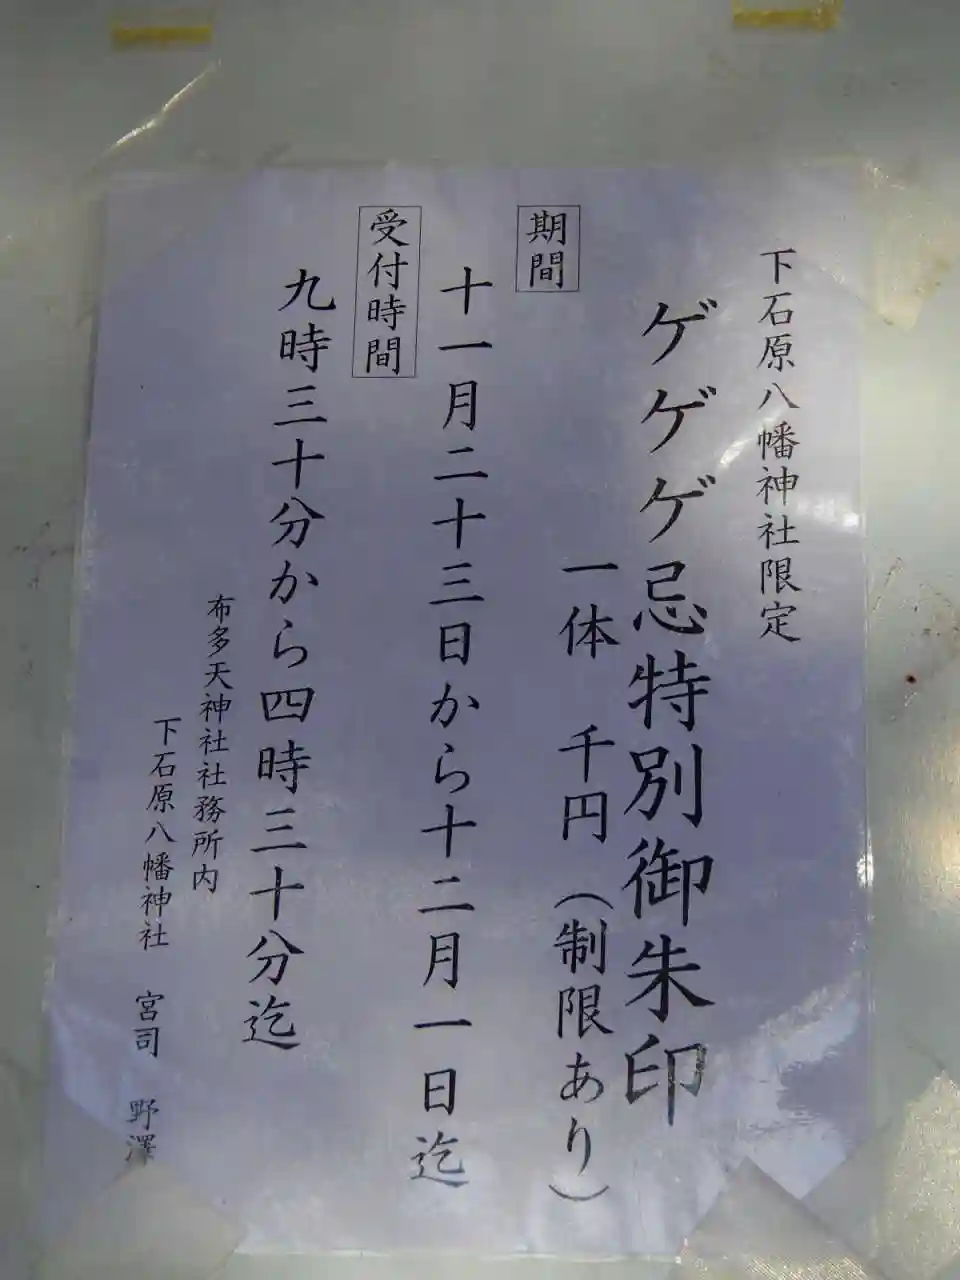 下石原八幡神社限定
ゲゲゲ忌特別御朱印
一体 千円(制限あり)
期間
十一月二十三日から十二月一日迄
受付時間
九時三十分から四時三十分迄
布多天神社社務所内
下石原八幡神社 宮司 野澤